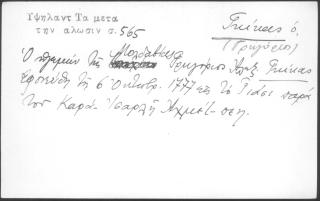 Υψηλαντ Τα μετα
την αλωσιν σ.565
Γκίκας ὁ.
(Γρηγόριος)
Ὁ ἡγεμὼν τῆς Μολδαβίας Γρηγόριος Ἀλεξ. Γκίκας
ἐφονεύθη τῇ 6 Ὀκτωβρ. 1777 εἰς τὸ Γιάσι παρὰ
τοῦ Καρὰ Ἀχμέτ